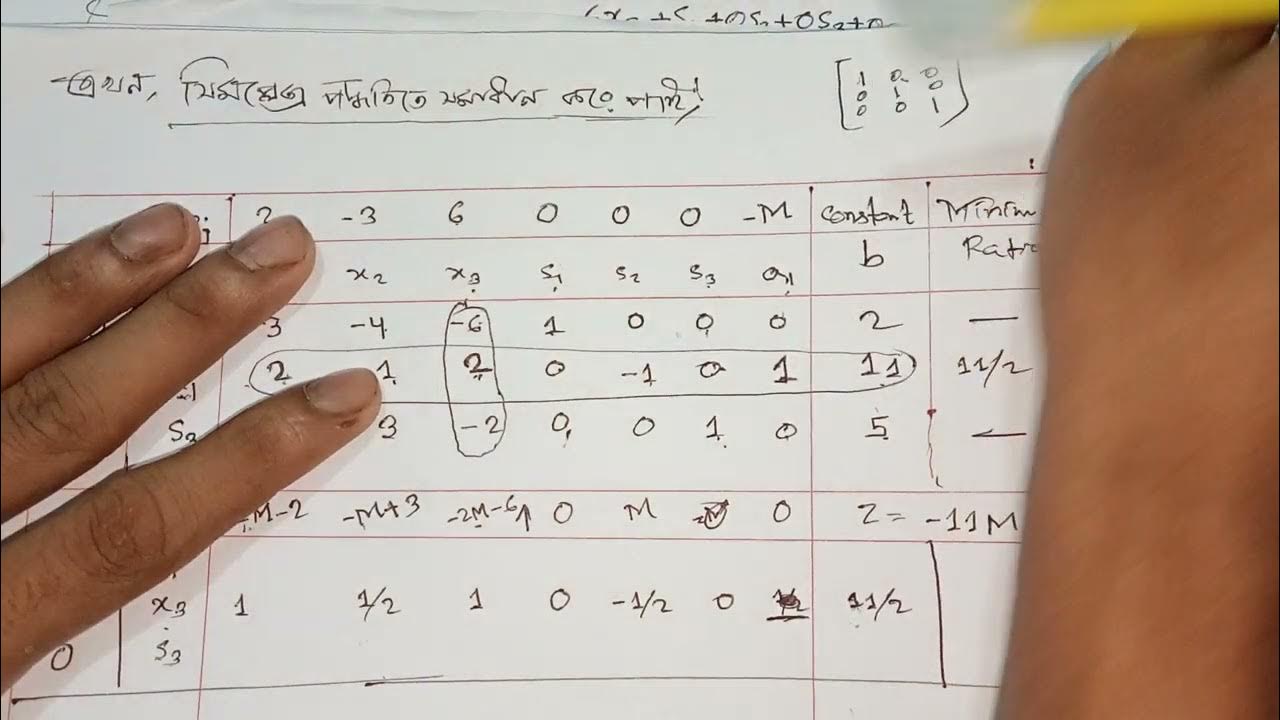 +0S₂+0
এখন, সিমপ্লেক্স পদ্ধতিতে সমাধান করে পাই!
[1 0 0
0 1 0
0 0 1)
j 2 -3 6 0 0 0 -M Constant Minim
x₂ x₃ S₁ S₂ S₃ a₁ b Ratio
3 -4 -6 1 0 0 0 2 —
2 1 2 0 -1 0 1 11 11/2
S₃ 3 -2 0 0 1 0 5 —
-M-2 -M+3 -2M-6↑ 0 M 0 Z = -11M
x₃ 1 1/2 1 0 -1/2 0 11/2
0 S₃